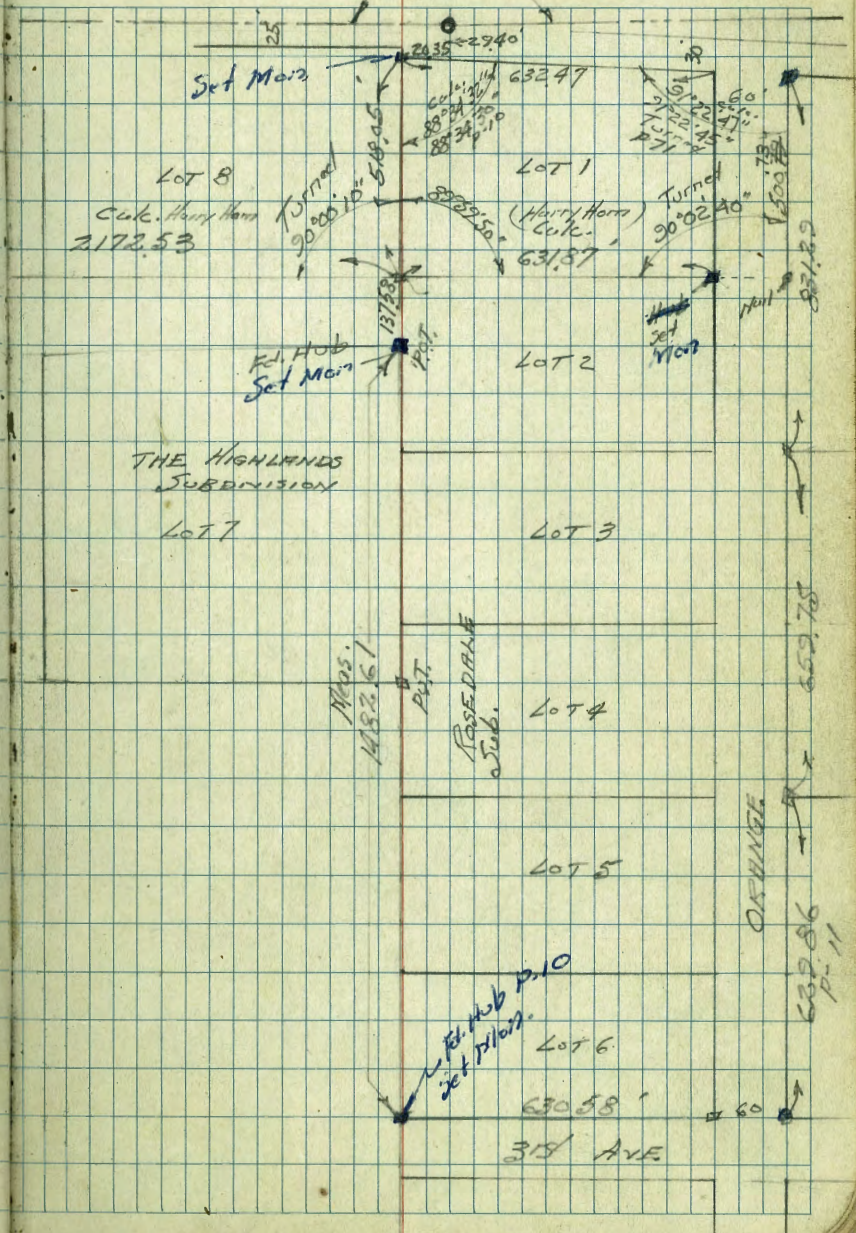 25
2035
2940'
30
Set Mon
632.47
Calc.
88°34'50"
P-10
91°22'47"
91°22'45"
Turned
P-71
60'
518.05
LOT 8
LOT 1
Calc. Harry Horn
2172.53
Turned
90°00'10"
89°59'50"
(Harry Horn)
Calc.
631.87'
Turned
90°02'40"
500.79
.73
831.29
137.58
Fd. Hub
Set Mon
P.O.T.
LOT 2
Hub
set
Mon
Nail
THE HIGHLANDS
SUBDIVISION
LOT 7
LOT 3
Meas.
1482.61
P.O.T.
ROSEDALE
Sub.
LOT 4
659.75
ORANGE
LOT 5
629.86
P-11
Fd. Hub P.10
Set Mon.
LOT 6
630.58'
60
31st AVE.